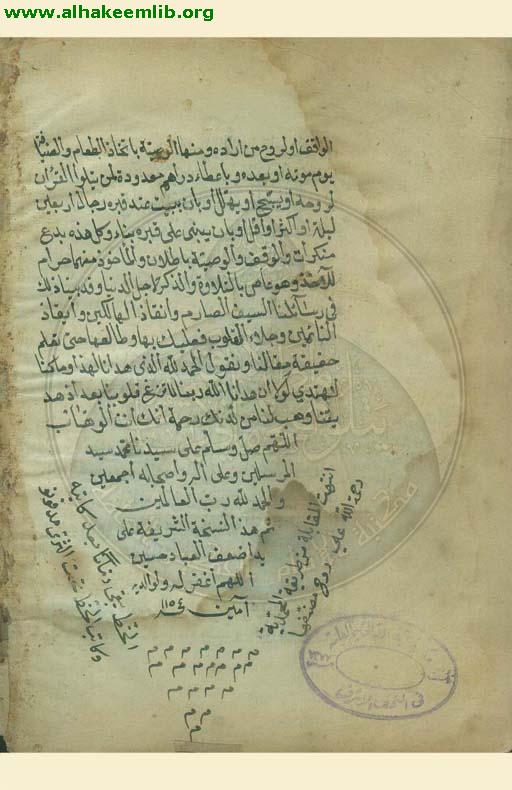 www.alhakeemlib.org
الواقف او لروح من اراده ومنها الوصية باتخاذ الطعام والضيافة
يوم موته او بعده وباعطاء دراهم معدودة لمن يتلوا القرآن
لروحه او يسبح او يهلل او بان يبيت عند قبره رجال اربعين
ليلة او اكثر او اقل او بان يبنى على قبره بناء وكل هذه بدع
منكرات والوقف والوصية باطلان والمأخوذ منهما حرام
للآخذ وهو عاص بالتلاوة والذكر لاجل الدنيا وقد بينا ذلك
في رسائلنا السيف الصارم وانقاذ الهالكين وايقاظ
النائمين وجلاء القلوب فعليك بها وطالعها حتى تعلم
حقيقة مقالنا وتقول الحمد لله الذي هدانا لهذا وما كنا
لنهتدي لولا ان هدانا الله ربنا لا تزغ قلوبنا بعد اذ هد
يتنا وهب لنا من لدنك رحمة انك انت الوهاب
اللهم صل وسلم على سيدنا محمد سيد
المرسلين وعلى آله واصحابه اجمعين
والحمد لله رب العالمين
تم هذا النسخة الشريفة على
يد اضعف العباد حسين
اللهم اغفر له ولوالديه
آمين ١١٥٤
م م م م م م م
م م م م م م
م م م م
م م
م
انتهت المقابلة من طريقة المحمدية
رحمة الله على روح مصنفها
الخط يبقى زمانا بعد كاتبه
وكاتب الخط تحت الثرى مدفونا
في النجف الاشرف